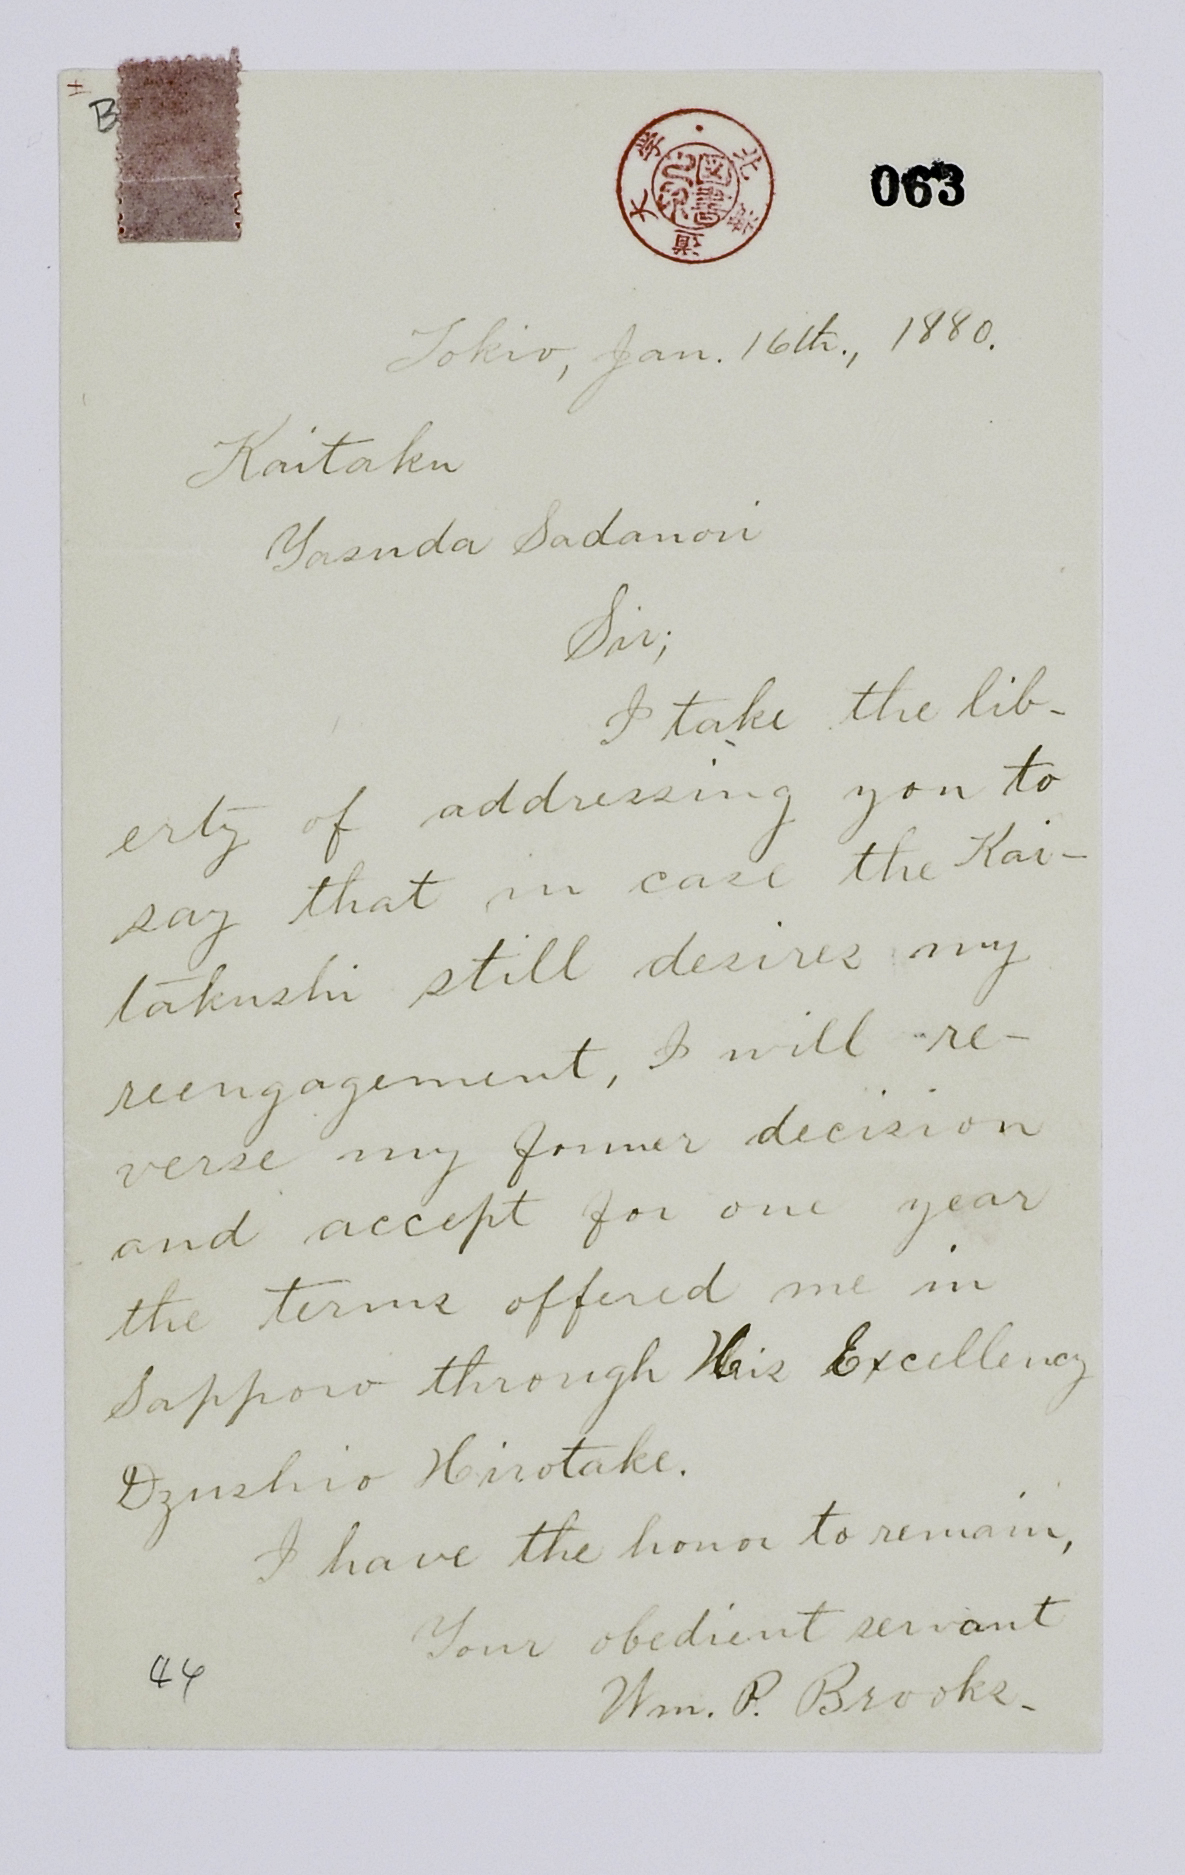 B
北海道大学
図書
063
Tokio, Jan. 16th., 1880.
Kaitaku
Yasuda Sadanori
Sir;
I take the lib-
erty of addressing you to
say that in case the Kai-
takushi still desires my
reengagement, I will re-
verse my former decision
and accept for one year
the terms offered me in
Sapporo through His Excellency
Dzushio Hirotake.
I have the honor to remain,
Your obedient servant
Wm. P. Brooks.